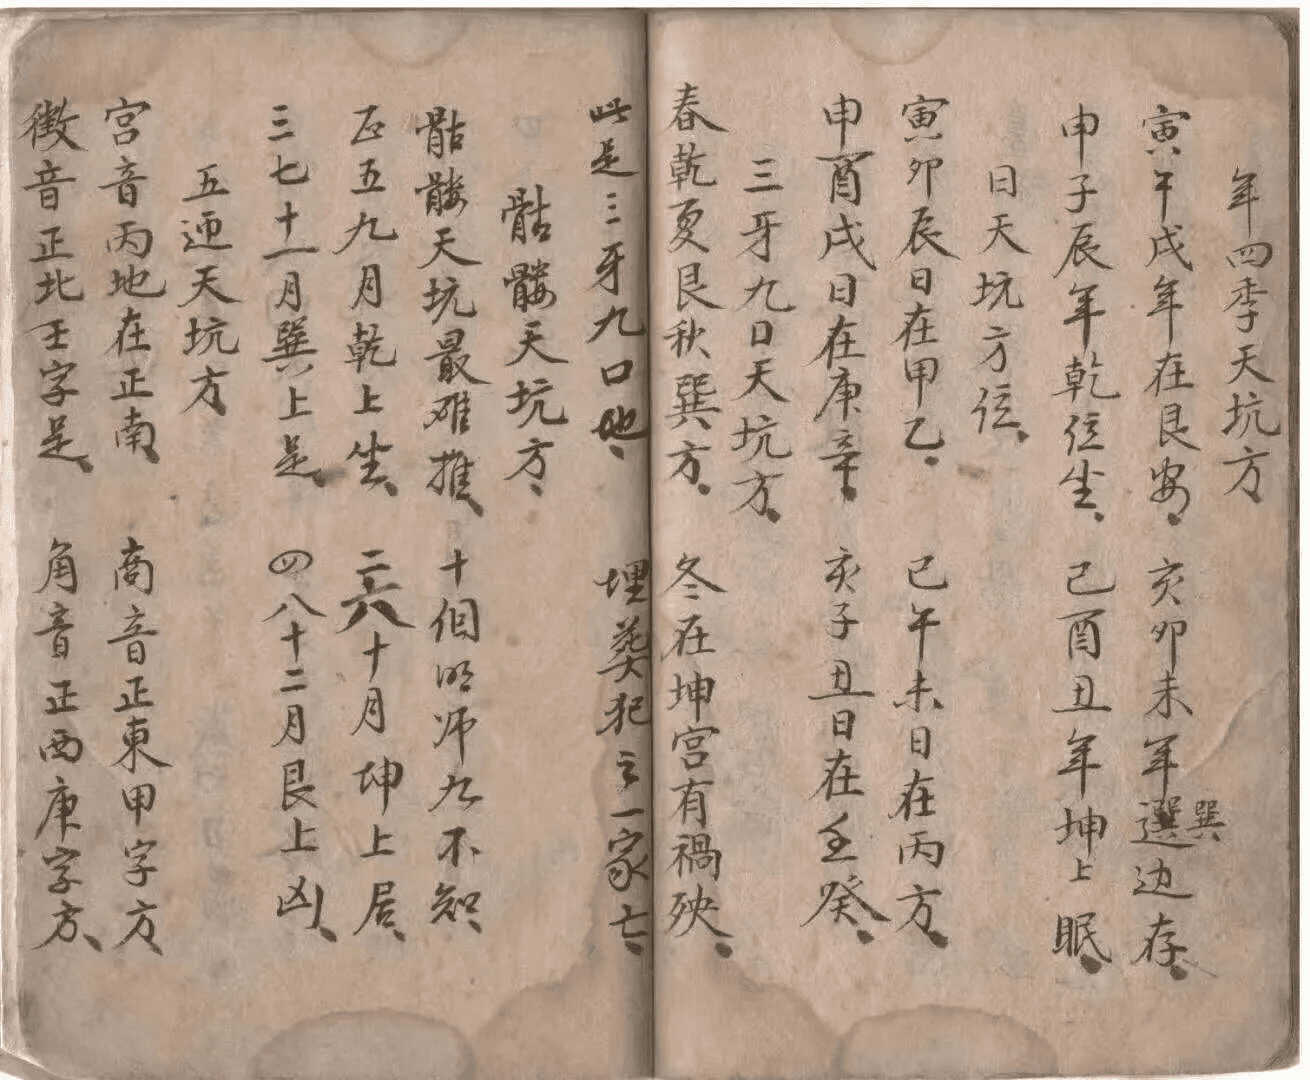 年四季天坑方
寅午戌年在艮安、亥卯未年選边存、
巽
申子辰年乾位坐、己酉丑年坤上眠、
日天坑方位、
寅卯辰日在甲乙、己午未日在丙方、
申酉戌日在庚辛、亥子丑日在壬癸、
三牙九日天坑方、
春乾夏艮秋巽方、冬在坤宫有禍殃、
此是三牙九口地、埋葬犯之一家亡、
骷髅天坑方、
骷髅天坑最难推、十個明师九不知、
正五九月乾上坐、二六十月坤上居、
三七十一月巽上是、四八十二月艮上凶、
五迊天坑方、
宫音丙地在正南、商音正東甲字方、
徵音正北壬字是、角音正西庚字方、